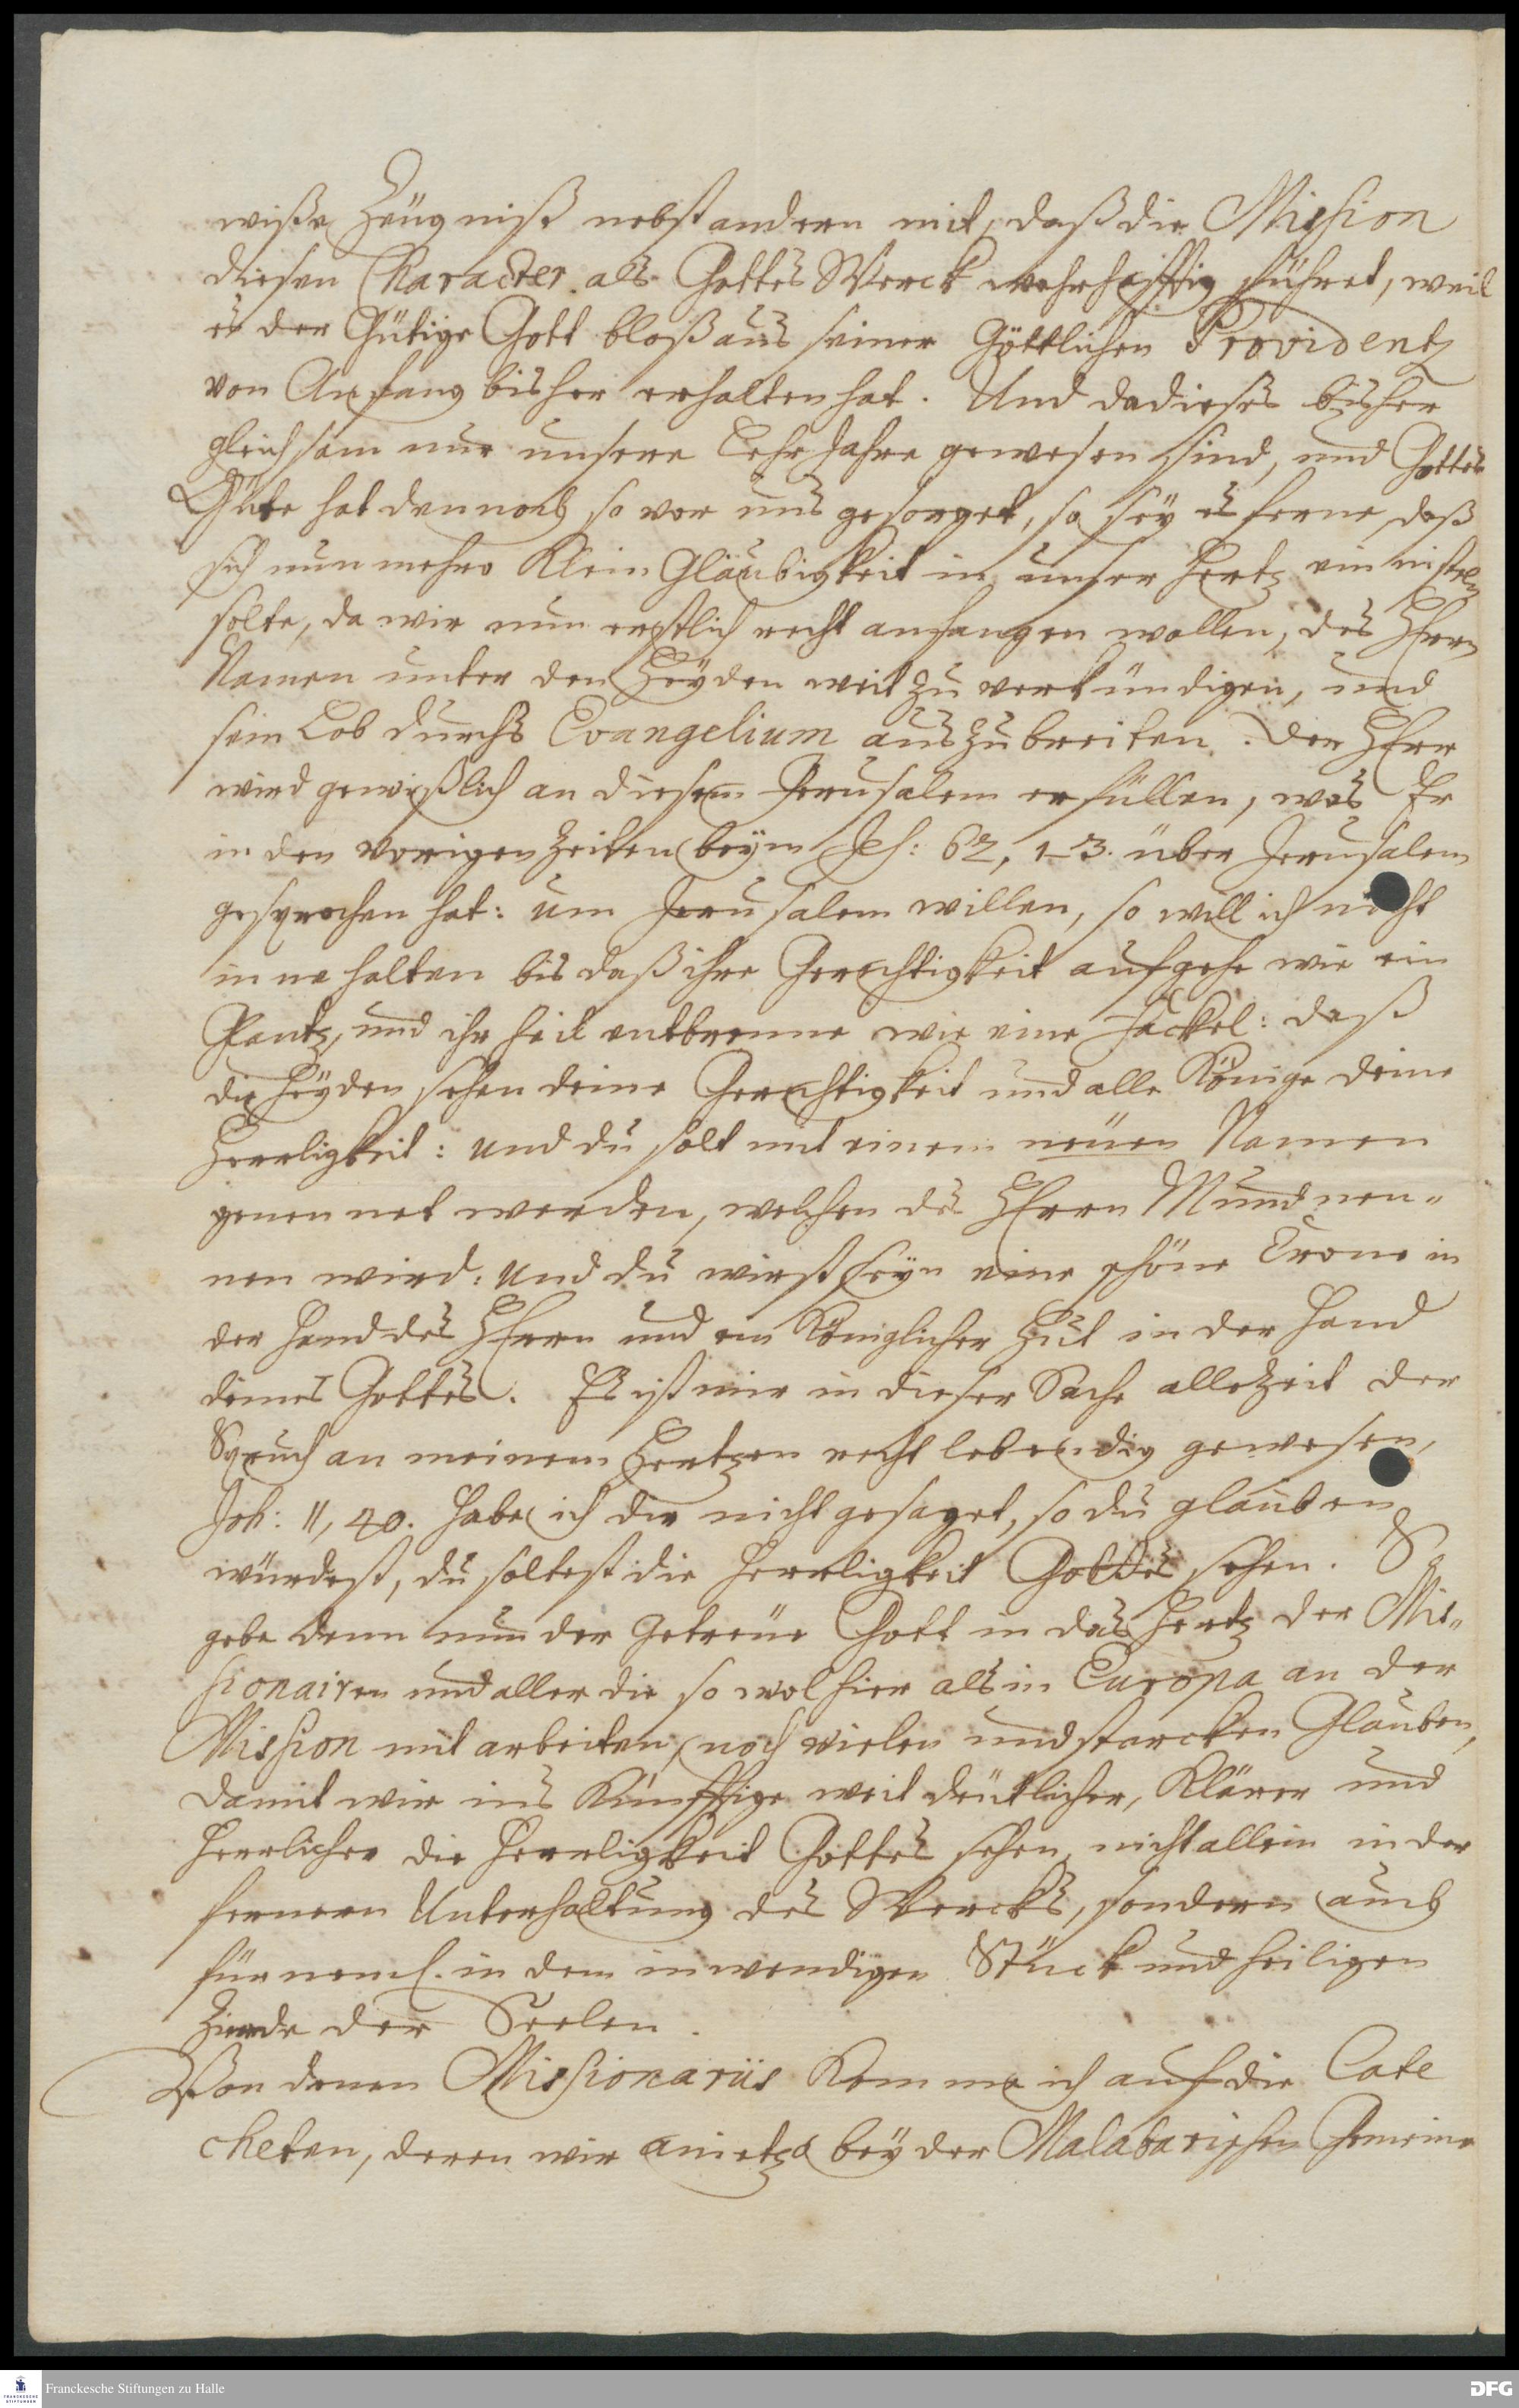 wiße Zeügniß nebst andern mit, daß die Mission
diesen Character als Gottes Werck wahrhafftig führet, weil
es der Gütige Gott bloß aus seiner Göttlichen Providentz
von Anfang bisher erhalten hat. Und da dieses bisher
gleichsam nur unsere Lehr Jahre gewesen sind, und Gottes
Güte hat dennoch so vor uns gesorget, so sey es ferne, daß
sich nunmehro Klein Gläubigkeit in unser Hertz einnisteln
solte, da wir nun erstlich recht anfangen wollen, des HErrn
Namen unter den Heyden weit zu verkündigen, und
sein Lob durchs Evangelium auszubreiten. Der HErr
wird gewißlich an diesem Jerusalem erfüllen, was Er
in den vorigen Zeiten beym Jes: 62, 1-3. über Jerusalem
gesprochen hat: um Jerusalem willen, so will ich nicht
inne halten bis daß ihre Gerechtigkeit aufgehe wie ein
Glantz, und ihr Heil entbrenne wie eine Fackel: daß
die Heyden sehen deine Gerechtigkeit und alle Könige deine
Herrligkeit: und du solt mit einem neüen Namen
genennet werden, welchen des HErrn Mund nen-
nen wird: und du wirst seyn eine schöne Crone in
der Hand des HErrn und ein Königlicher Hut in der Hand
deines Gottes. Es ist mir in dieser Sache allezeit der
Spruch an meinem Hertzen recht lebendig gewesen,
Joh: 11, 40. Habe ich dir nicht gesaget, so du glauben
würdest, du soltest die Herrligkeit Gottes sehen. So
gebe denn nun der getreue Gott in das Hertz der Mis-
sionairen und aller die so wol hier als in Europa an der
Mission mit arbeiten, noch vielen und starcken Glauben,
damit wir ins Künfftige weit deutlicher, Klärer und
Herrlicher die Herrligkeit Gottes sehen, nicht allein in der
fernern Unterhaltung des Wercks, sondern auch
fürneml. in dem inwendigen Stück und heiligen
Zierde der Seelen.
Von denen Missionariis Komme ich auf die Cate
cheten, deren wir anietzo bey der Malabarischen Gemeine
Franckesche Stiftungen zu Halle
DFG